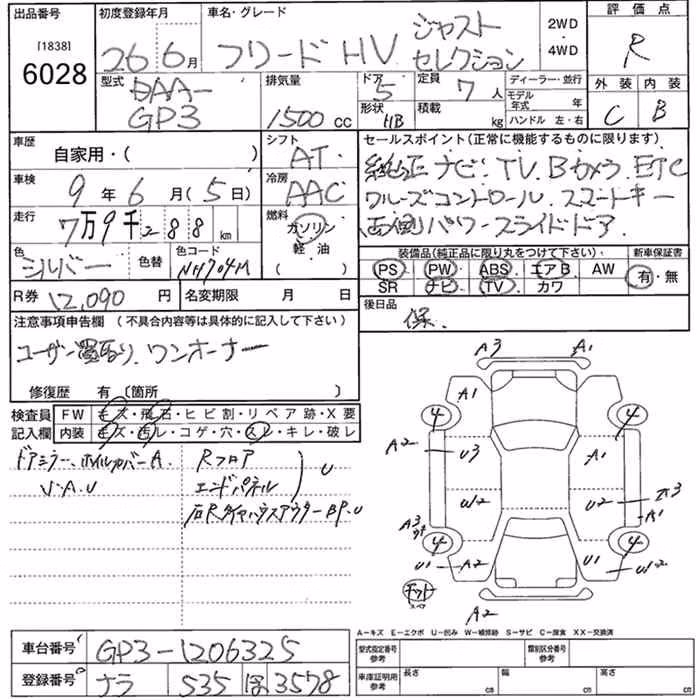 出品番号 初度登録年月 車名・グレード 評価点
[1838]
6028
26年6月 フリード HV ジャスト
セレクション
2WD
・
4WD
R
型式 排気量 ドア 定員 ディーラー・並行 外装 内装
DAA-
GP3 1500 cc 5 7 人 モデル年式 年 C B
形状 HB 積載 kg ハンドル 左・右
車歴 シフト セールスポイント(正常に機能するものに限ります)
自家用・( ) AT
純正ナビ. TV. Bカメラ. ETC
車検 冷房 クルーズコントロール. スマートキー
9年6月(5日) AAC 両側パワースライドドア.
走行 燃料
7万9千288 km ガソリン
色 色替 色コード 軽・油
シルバー NH704M ( )
装備品(純正品に限り丸をつけて下さい) 新車保証書
PS PW ABS エアB AW 有・無
SR ナビ TV カワ
R券 12,090 円 名変期限 月 日 後日品
保.
注意事項申告欄(不具合内容等は具体的に記入して下さい)
ユーザー買取り. ワンオーナー
修復歴 有〔箇所 〕
検査員 FW キズ・飛石・ヒビ割・リペア跡・X要
記入欄 内装 キズ・汚レ・コゲ・穴・スレ・キレ・破レ
ドアミラー、ホイルカバーA. Rフロア
V・A.U エンドパネル U
右RタイヤハウスアウターBP.U
A3 A1
A1
4 4
A2 U3 A1
U2 U2 A1
A3
4 4
U1 A2 U1 U2
スペア
A2
A−キズ E−エクボ U−凹み W−補修跡 S−サビ C−腐食 XX−交換済
車台番号 GP3-1206325 型式指定番号 参考 類別区分番号 参考
登録番号 ナラ 535 ほ 3578 車庫証明用 参考 長さ cm 幅 cm 高さ cm